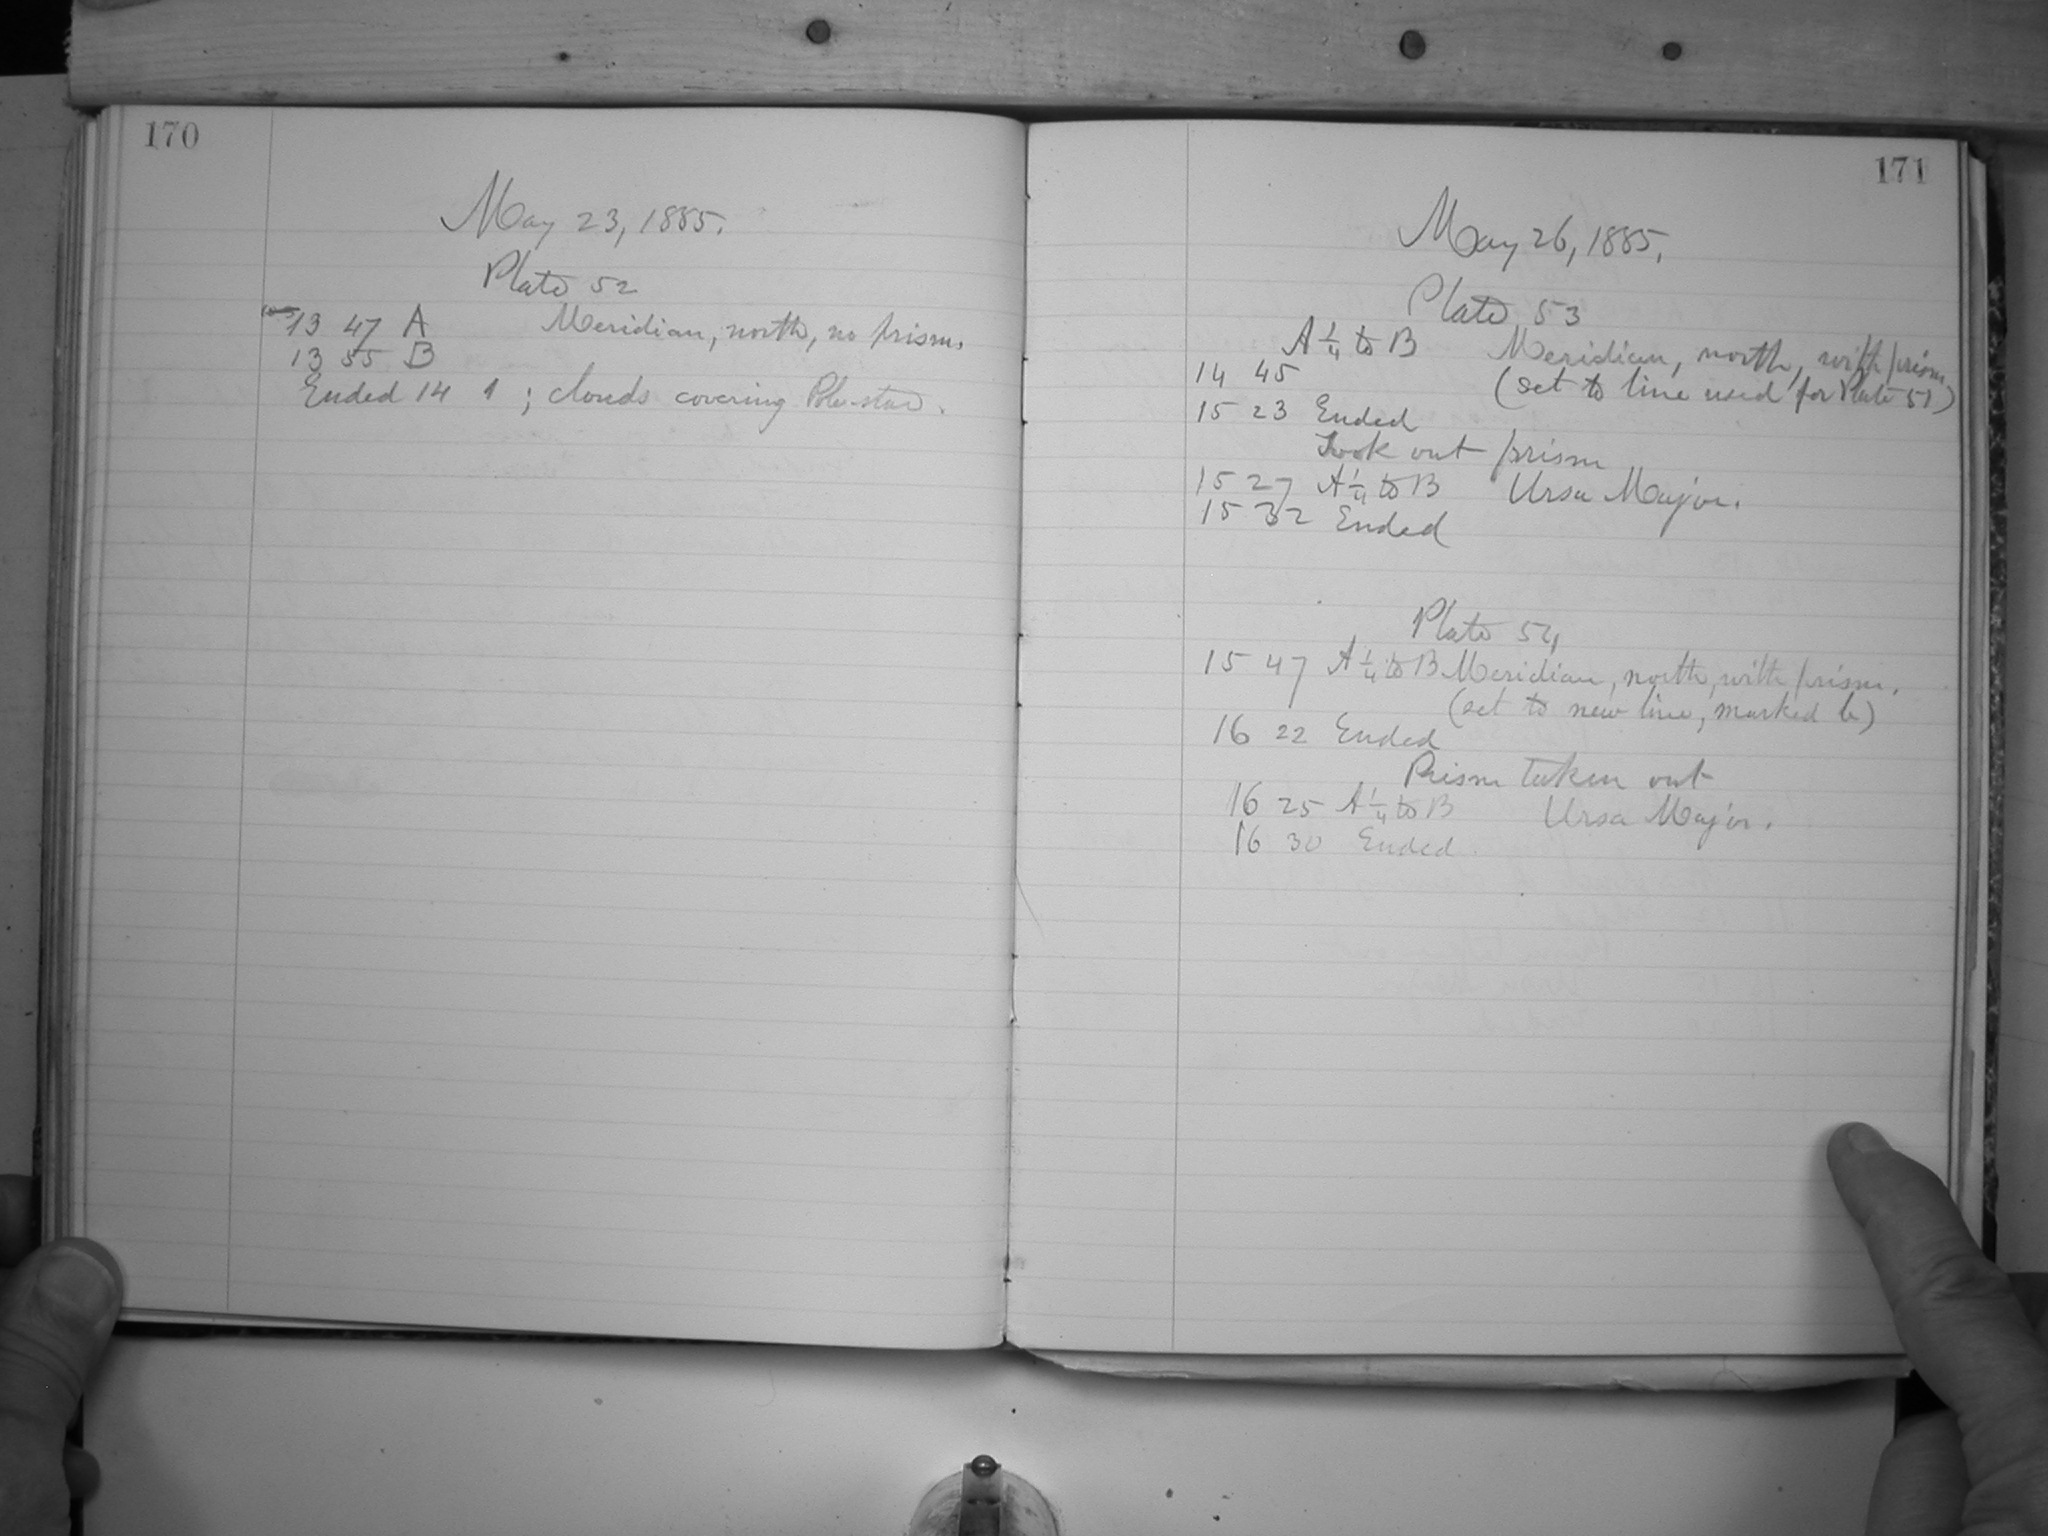 170
May 23, 1885.
Plate 52
13 47 A Meridian, north, no prism.
13 55 B
Ended 14 1 ; clouds covering Pole-star.
171
May 26, 1885.
Plate 53
A 1/4 to B Meridian, north, with prism
14 45 (set to line used for Plate 51)
15 23 Ended
Took out prism
15 27 A 1/4 to B Ursa Major.
15 32 Ended
Plate 54
15 47 A 1/4 to B Meridian, north, with prism.
(set to new line, marked b)
16 22 Ended
Prism taken out
16 25 A 1/4 to B Ursa Major.
16 30 Ended.